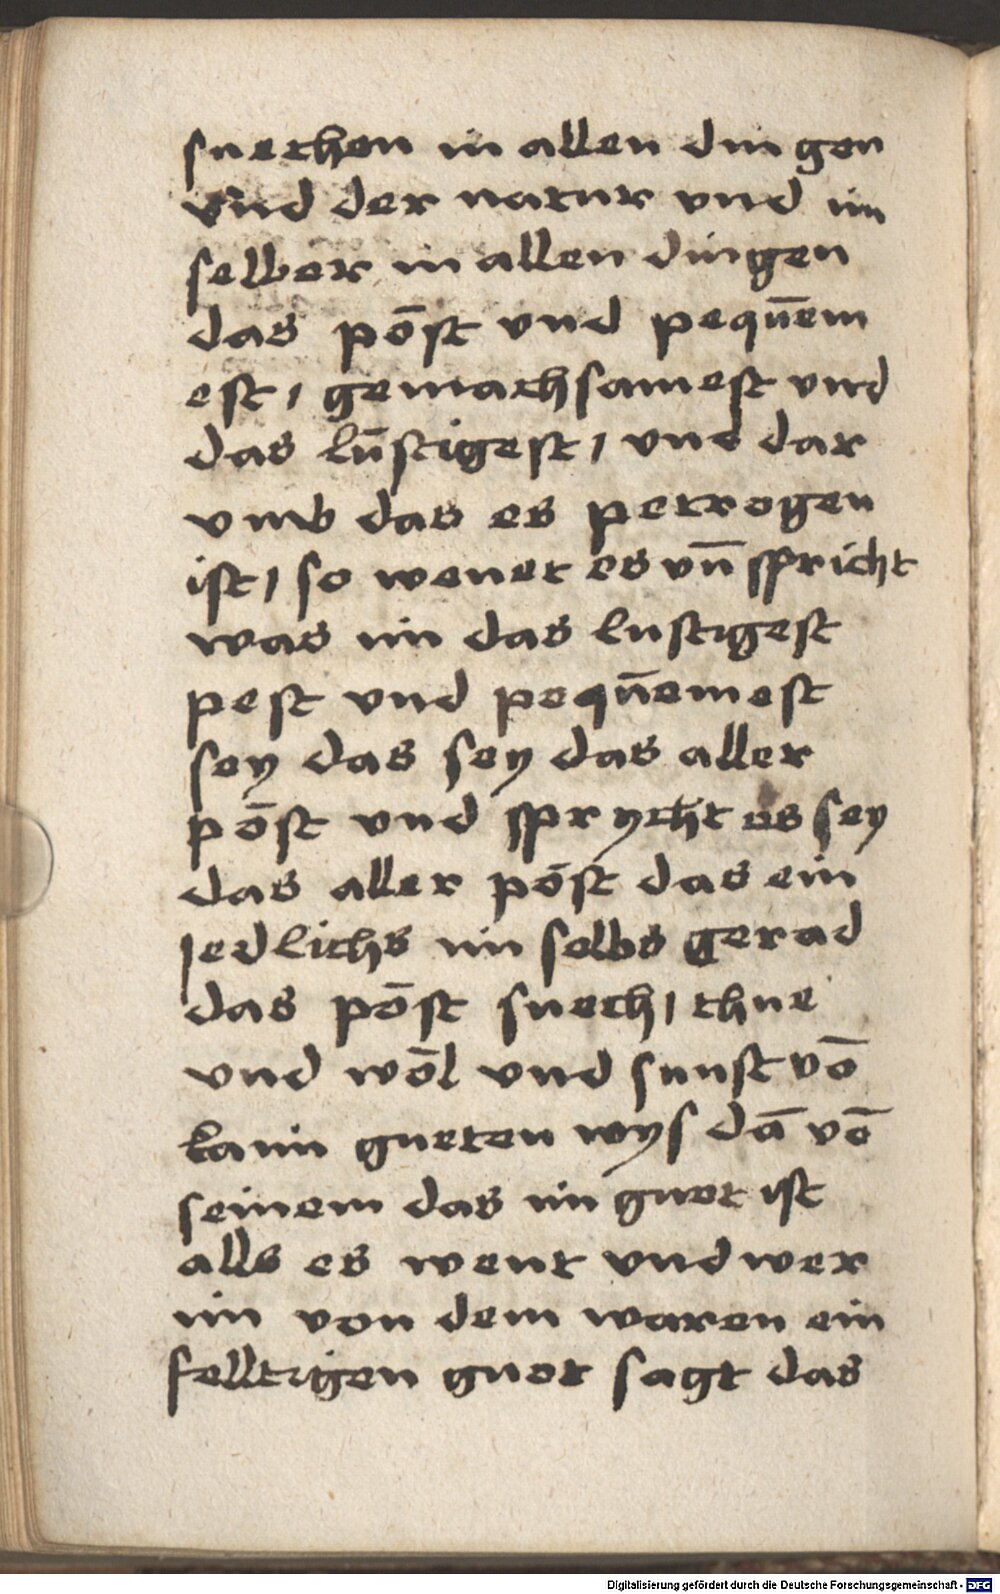 suechen in allen dingen
vnd der natur vnd im
selber in allen dingen
das pōst vnd peqūem
est / gemachsamest vnd
das lūstigest / vnd dar
vmb das es petrogen
ist / so wenet es vn̄ spricht
was im das lustigest
pest vnd peqūemest
sey das sey das aller
pōst vnd sprycht es sey
das aller pōst das ein
jedlichs im selbs gerad
das pōst suech / thue
vnd wōl vnd sunst vō
kaim gueten wys dā vō
seinem das im guet ist
alls es went vnd wer
im von dem waren ein
felltigen guot sagt das
Digitalisierung gefördert durch die Deutsche Forschungsgemeinschaft - DFG